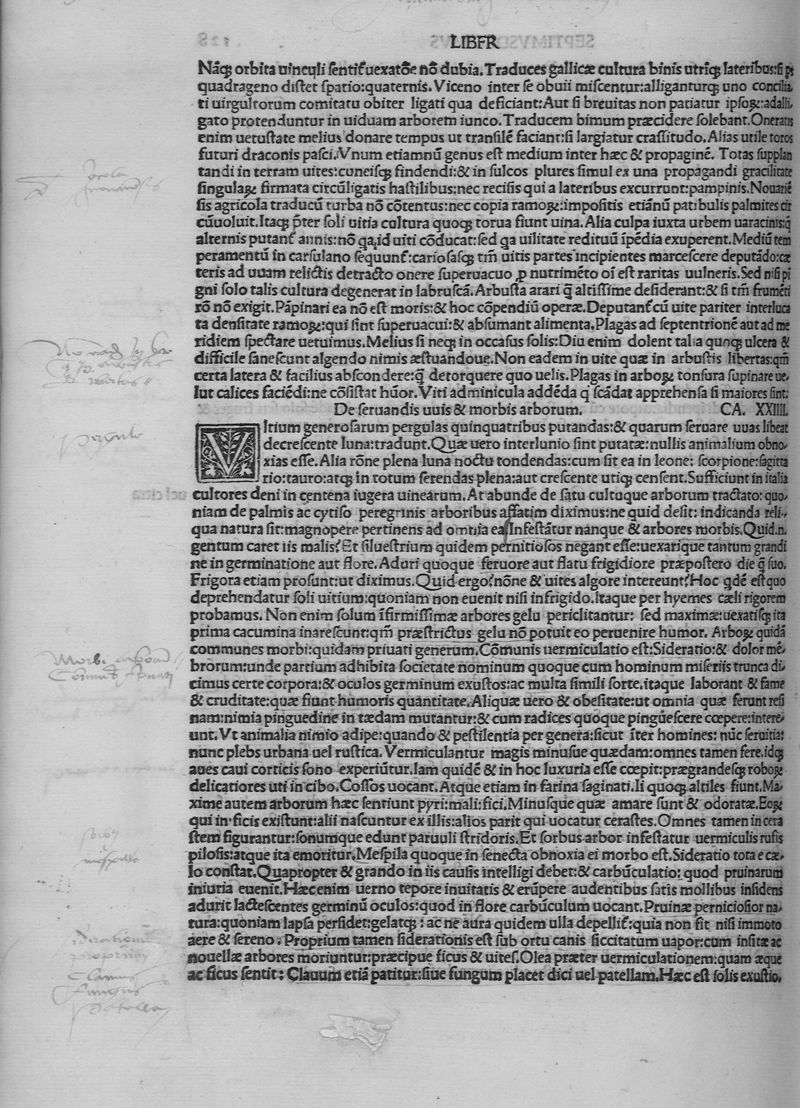 LIBER
Nāq; orbita uinculi ſentit᷑ uexatōe nō dubia. Traduces gallicæ cultura binis utriq; lateribus: ſi
quadrageno diſtet ſpatio: quaternis. Viceno inter ſe obuii miſcentur: alliganturq; uno concilia
ti uirgultorum comitatu obiter ligati qua deficiant: Aut ſi breuitas non patiatur ipſoꝝ: adalli,
gato protenduntur in uiduam arborem iunco. Traducem bimum præcidere ſolebant. Onerans
enim uetuſtate melius donare tempus ut tranſilē faciant: ſi largiatur craſſitudo. Alias utile toros
futuri draconis paſci. Vnum etiamnū genus eſt medium inter hæc & propaginē. Totas ſupplan
tandi in terram uites: cuneiſq; findendi: & in ſulcos plures ſimul ex una propagandi gracilitate
ſingulaꝝ firmata circūligatis haſtilibus: nec reciſis qui a lateribus excurrunt: pampinis. Nouariē
ſis agricola traducū turba nō cōtentus: nec copia ramoꝝ: impoſitis etiānū patibulis palmites cir
cūuoluit. Itaq; p̄ter ſoli uitia cultura quoq; torua fiunt uina. Alia culpa iuxta urbem uaracinis: q̄
alternis putant᷑ annis: nō qa id uiti cōducat: ſed qa uilitate redituū īpēdia exuperent. Mediū tem
peramentū in carſulano ſequunt᷑: carioſaſq; tm̄ uitis partes incipientes marceſcere deputādo: cæ
teris ad uuam relictis detracto onere ſuperuacuo ꝓ nutrimēto oī eſt raritas uulneris. Sed niſi pī
gni ſolo talis cultura degenerat in labruſcā. Arbuſta arari q̄ altiſſime deſiderant: & ſi tm̄ frumēti
rō nō exigit. Pāpinari ea nō eſt moris: & hoc cōpendiū operæ. Deputant᷑ cū uite pariter interluca
ta denſitate ramoꝝ: qui ſint ſuperuacui: & abſumant alimenta. Plagas ad ſeptentrionē aut ad me
ridiem ſpectare uetuimus. Melius ſi neq; in occaſus ſolis: Diu enim dolent talia quoq; ulcera &
difficile ſaneſcunt algendo nimis æſtuandoue. Non eadem in uite quæ in arbuſtis libertas: qm̄
certa latera & facilius abſcondere: q̄ detorquere quo uelis. Plagas in arboꝝ tonſura ſupinare ue,
lut calices faciēdi: ne cōſiſtat hūor. Viti adminicula addēda q̄ ſcādat apprehenſa ſi maiores ſint:
De ſeruandis uuis & morbis arborum. CA. XXIIII.
VItium generoſarum pergulas quinquatribus putandas: & quarum ſeruare uuas libeat
decreſcente luna: tradunt. Quæ uero interlunio ſint putatæ: nullis animalium obno,
xias eſſe. Alia rōne plena luna noctu tondendas: cum ſit ea in leone: ſcorpione: ſagitta
rio: tauro: atq; in totum ſerendas plena: aut creſcente utiq; cenſent. Sufficiunt in italia
cultores deni in centena iugera uinearum. At abunde de ſatu cultuque arborum tractato: quo,
niam de palmis ac cytiſo peregrinis arboribus affatim diximus: ne quid deſit: indicanda reli,
qua natura ſit: magnopere pertinens ad omnia ea. Infeſtātur nanque & arbores morbis. Quid.n.
gentum caret iis malis? Et ſilueſtrium quidem pernitioſos negant eſſe: uexarique tantum grandi
ne in germinatione aut flore. Aduri quoque feruore aut flatu frigidiore præpoſtero die q̄ ſuo.
Frigora etiam proſunt: ut diximus. Quid ergo? nōne & uites algore intereunt? Hoc qdē eſt quo
deprehendatur ſoli uitium: quoniam non euenit niſi infrigido. Itaque per hyemes cæli rigorem
probamus. Non enim ſolum īfirmiſſimæ arbores gelu periclitantur: ſed maximæ: uexatiſq; ita
prima cacumina inareſcunt: qm̄ præſtrictus gelu nō potuit eo peruenire humor. Arboꝝ quidā
communes morbi: quidam priuati generum. Cōmunis uermiculatio eſt: Sideratio: & dolor mē,
brorum: unde partium adhibita ſocietate nominum quoque cum hominum miſeriis trunca di,
cimus certe corpora: & oculos germinum exuſtos: ac multa ſimili ſorte. itaque laborant & fame
& cruditate: quæ fiunt humoris quantitate. Aliquæ uero & obeſitate: ut omnia quæ ferunt reſi
nam: nimia pinguedine in tædam mutantur: & cum radices quoque pingūeſcere cœpere: intere,
unt. Vt animalia nimio adipe: quando & peſtilentia per genera: ſicut īter homines: nūc ſeruitia:
nunc plebs urbana uel ruſtica. Vermiculantur magis minuſue quædam: omnes tamen fere. idq;
aues caui corticis ſono experiūtur. Iam quidē & in hoc luxuria eſſe cœpit: prægrandeſq; roboꝝ
delicatiores uti in cibo. Coſſos uocant. Atque etiam in farina ſaginati. Ii quoq; altiles fiunt. Ma,
xime autem arborum hæc ſentiunt pyri: mali: fici. Minuſque quæ amaræ ſunt & odoratæ. Eoꝝ
qui in ficis exiſtunt: alii naſcuntur ex illis: alios parit qui uocatur ceraſtes. Omnes tamen in cera
ſtem figurantur: ſonumque edunt paruuli ſtridoris. Et ſorbus arbor infeſtatur uermiculis rufis
piloſis: atque ita emoritur. Meſpila quoque in ſenecta obnoxia ei morbo eſt. Sideratio tota e cæ,
lo conſtat. Quapropter & grando in iis cauſis intelligi debet: & carbūculatio: quod pruinarum
iniuria euenit. Hæcenim uerno tepore inuitatis & erūpere audentibus ſatis mollibus inſidens
adurit lacteſcentes germinū oculos: quod in flore carbūculum uocant. Pruinæ pernicioſior na,
tura: quoniam lapſa perſidet: gelatq;: ac ne aura quidem ulla depellit᷑: quia non fit niſi immoto
aere & ſereno. Proprium tamen ſiderationis eſt ſub ortu canis ſiccitatum uapor: cum inſitæ ac
nouellæ arbores moriuntur: præcipue ficus & uites. Olea præter uermiculationem: quam æque
ac ficus ſentit: Clauum etiā patitur: ſiue fungum placet dici uel patellam. Hæc eſt ſolis exuſtio.